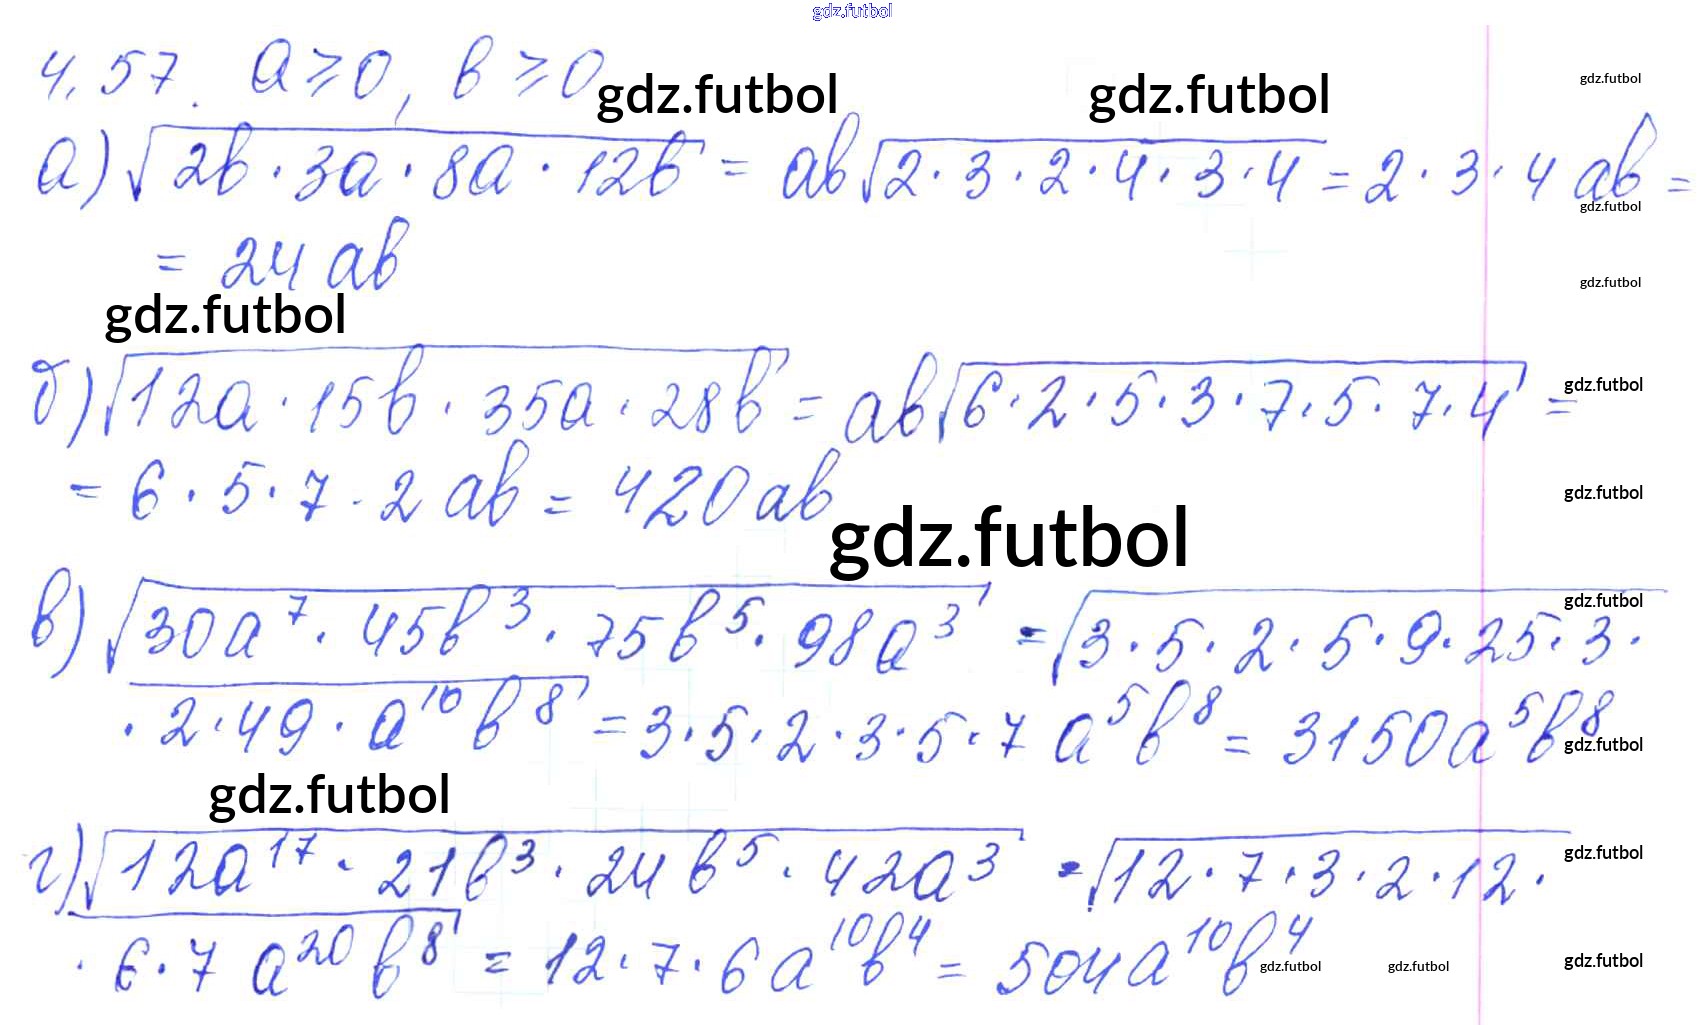 gdz.futbol
4.57. a ⩾ 0, b ⩾ 0 gdz.futbol gdz.futbol gdz.futbol
а) √(2b · 3a · 8a · 12b) = ab√(2 · 3 · 2 · 4 · 3 · 4) = 2 · 3 · 4 ab =
gdz.futbol
= 24 ab gdz.futbol
gdz.futbol
б) √(12a · 15b · 35a · 28b) = ab√(6 · 2 · 5 · 3 · 7 · 5 · 7 · 4) = gdz.futbol
= 6 · 5 · 7 · 2 ab = 420 ab gdz.futbol
gdz.futbol
gdz.futbol
в) √(30a⁷ · 45b³ · 75b⁵ · 98a³) = √(3 · 5 · 2 · 5 · 9 · 25 · 3 ·
· 2 · 49 · a¹⁰ b⁸) = 3 · 5 · 2 · 3 · 5 · 7 a⁵b⁸ = 3150a⁵b⁸ gdz.futbol
gdz.futbol
г) √(12a¹⁷ · 21b³ · 24b⁵ · 42a³) = √(12 · 7 · 3 · 2 · 12 · gdz.futbol
· 6 · 7 a²⁰ b⁸) = 12 · 7 · 6 a¹⁰b⁴ = 504a¹⁰b⁴ gdz.futbol gdz.futbol gdz.futbol